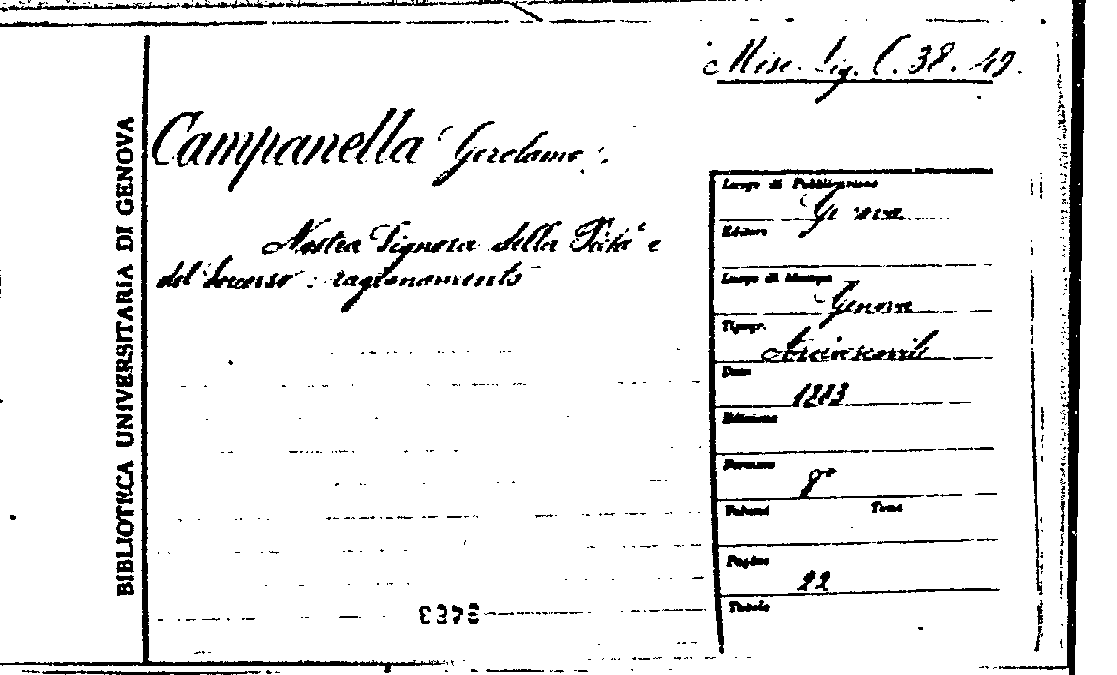 Misc. Lig. C. 38. 49.
BIBLIOTECA UNIVERSITARIA DI GENOVA
Campanella Gerolamo.
Nostra Signora della Pietà e
del Soccorso: ragionamento
Luogo di Pubblicazione
Genova
Editore
Luogo di Stampa
Genova
Tipogr.
Arcivescovile
Data
Edizione
Formato
8°
Volumi Tomi
Pagine
22